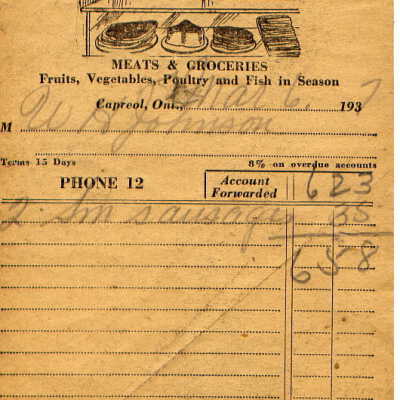 MEATS & GROCERIES
Fruits, Vegetables, Poultry and Fish in Season
Capreol, Ont., Mar 6, 1937
M W A Johnson
Terms 15 Days 8% on overdue accounts
PHONE 12 Account Forwarded 6 23
2 Sm sausages 35
6 58